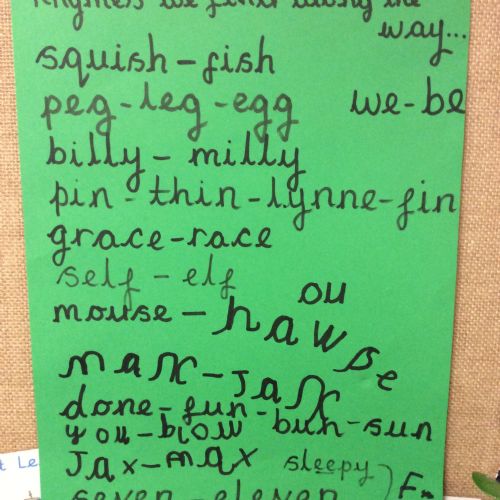 Rhymes we find along the
way...
squish - fish
peg - leg - egg we - be
billy - milly
pin - thin - lynne - fin
grace - race
self - elf
mouse - hawse
ou
max - Jax
done - fun - bun - sun
you - blow
Jax - max sleepy
seven - eleven